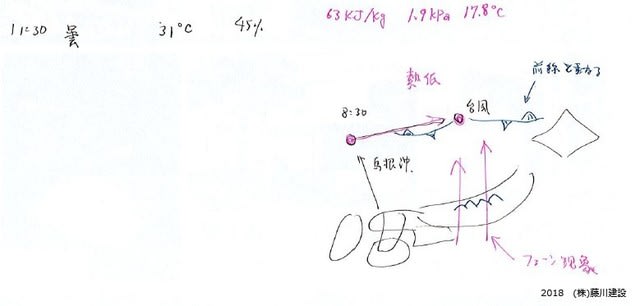 11:30 曇 31°C 45% 63 KJ/kg 1.9 kPa 17.8°C
熱低
前線と重なる
8:30
台風
島根沖
フェーン現象
2018 (株)藤川建設